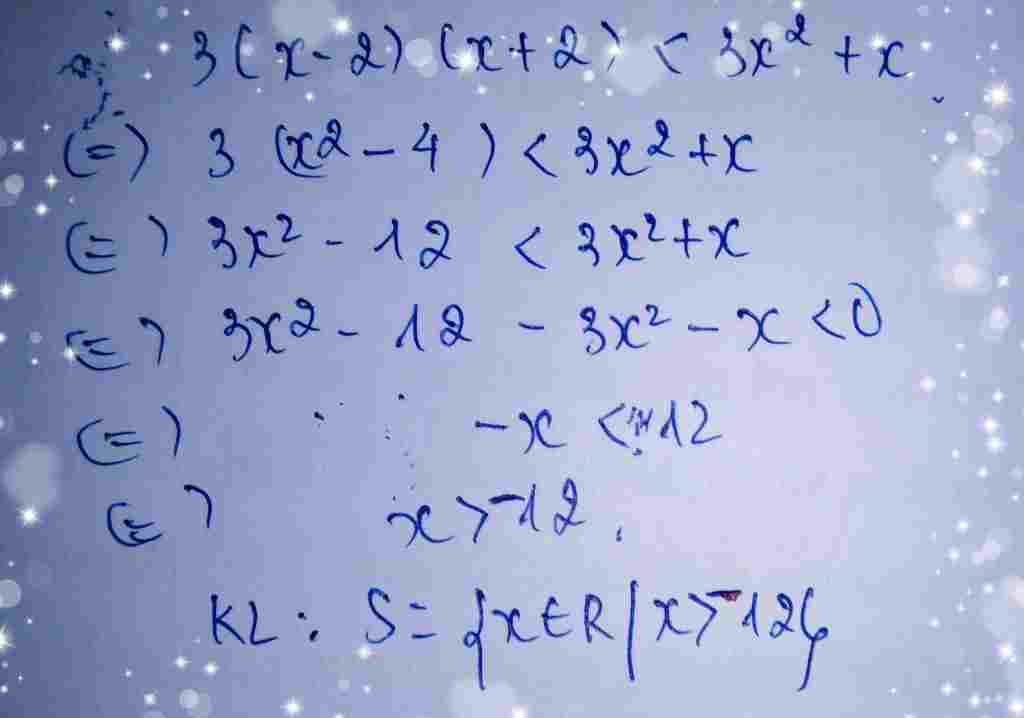 3(x-2)(x+2) < 3x² + x
(=) 3 (x2 - 4) < 3x² + x
(=) 3x² - 12 < 3x² + x
(=) 3x2 - 12 - 3x² - x < 0
(=) -x < 12
(=) x > -12.
KL: S = {x ∈ R / x > -12}